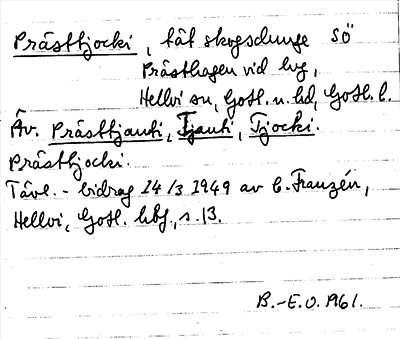 Prästtjocki, tät skogsdunge SÖ
Prästhagen vid lvg,
Hellvi sn, Gotl. n. hd, Gotl. l.
Äv. Prästtjauti, Tjauti, Tjocki.
Prästtjocki.
Tävl. - bidrag 14/3 1949 av C. Franzén,
Hellvi, Gotl. hbf., s. 13.
B.-E.O. 1961.